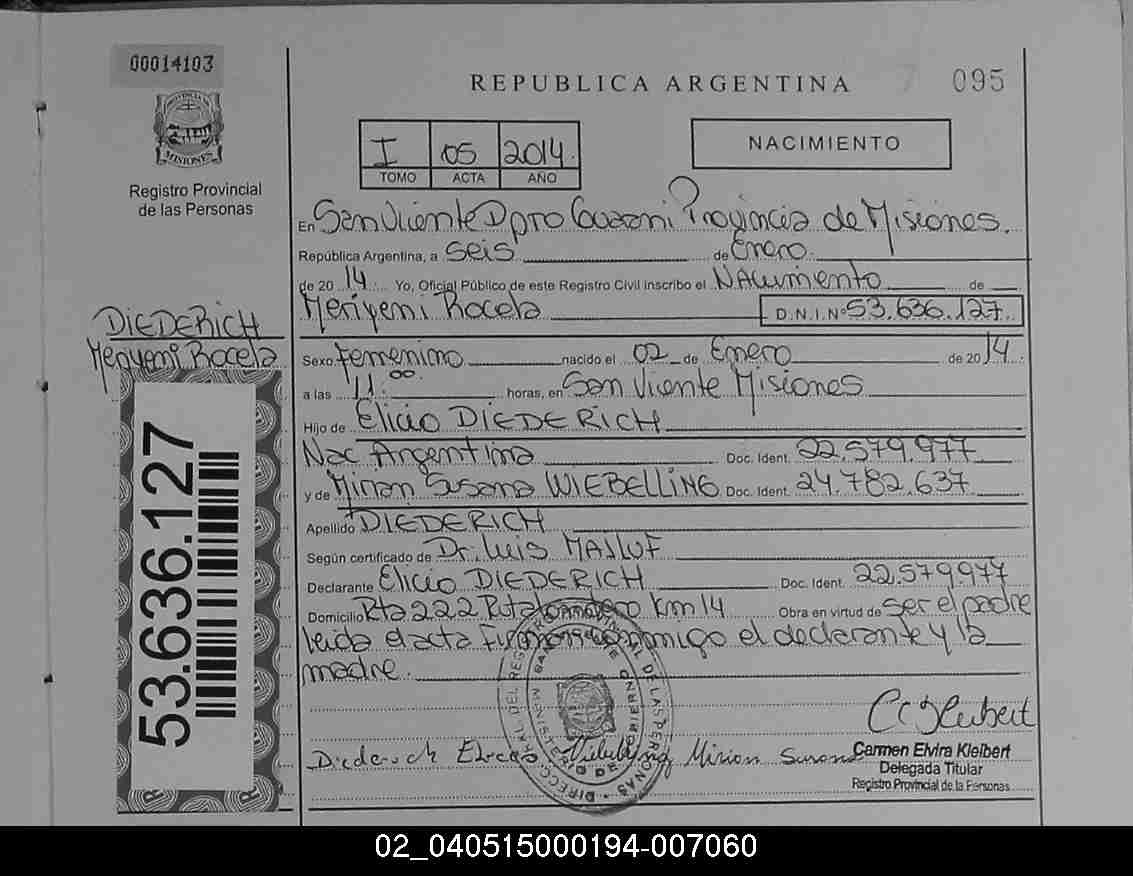 00014103
PROVINCIA DE
MISIONES
Registro Provincial
de las Personas
REPUBLICA ARGENTINA
095
I 05 2014
TOMO ACTA AÑO
NACIMIENTO
En San Vicente Dpto Guarani Provincia de Misiones.
República Argentina, a seis de Enero
de 2014 Yo, Oficial Público de este Registro Civil inscribo el Nacimiento de
Meriyemi Rocela D.N.I.Nº 53.636.127
DIEDERICH
Meriyemi Rocela
Sexo femenino nacido el 02 de Enero de 2014
a las 11:00 horas, en San Vicente Misiones
Hijo de Elicio DIEDERICH
Nac Argentina Doc. Ident. 22.579.977
y de Mirian Susana WIEBELLING Doc. Ident. 24.782.637
Apellido DIEDERICH
Según certificado de Dr. Luis MASLUF
Declarante Elicio DIEDERICH Doc. Ident. 22.579.977
Domicilio Rta 222 Km 14 Obra en virtud de ser el padre
leida el acta Firman conmigo el declarante y la
madre.
53.636.127
DIRECC. GRAL. DEL REGISTRO PROVINCIAL DE LAS PERSONAS
MINISTERIO DE GOBIERNO
Diederich Mirian Susana
Carmen Elvira Kleibert
Delegada Titular
Registro Provincial de la Personas
02_040515000194-007060